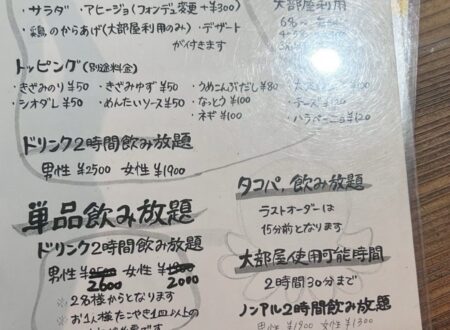 ・サラダ ・アヒージョ(フォンデュ変更+¥300)
・鶏のからあげ(大部屋利用のみ)・デザート
が付きます
大部屋利用
6名〜
トッピング(別途料金)
・きざみのり¥50 ・きざみゆず¥50 ・うめこんぶだし¥80
・シオダレ¥50 ・めんたいソース¥50 ・なっとう¥100 ・チーズ¥120
・ネギ¥100 ・ハラペーニョ¥120
ドリンク2時間飲み放題
男性¥2500 女性¥1900
単品飲み放題
ドリンク2時間飲み放題
男性 ¥2500 女性 ¥1900
2600 2000
※2名様からとなります
※お1人様たこやき1皿以上の
タコパ,飲み放題
ラストオーダーは
15分前となります
大部屋使用可能時間
2時間30分まで
ノンアル2時間飲み放題
男性 ¥1900 女性 ¥1300